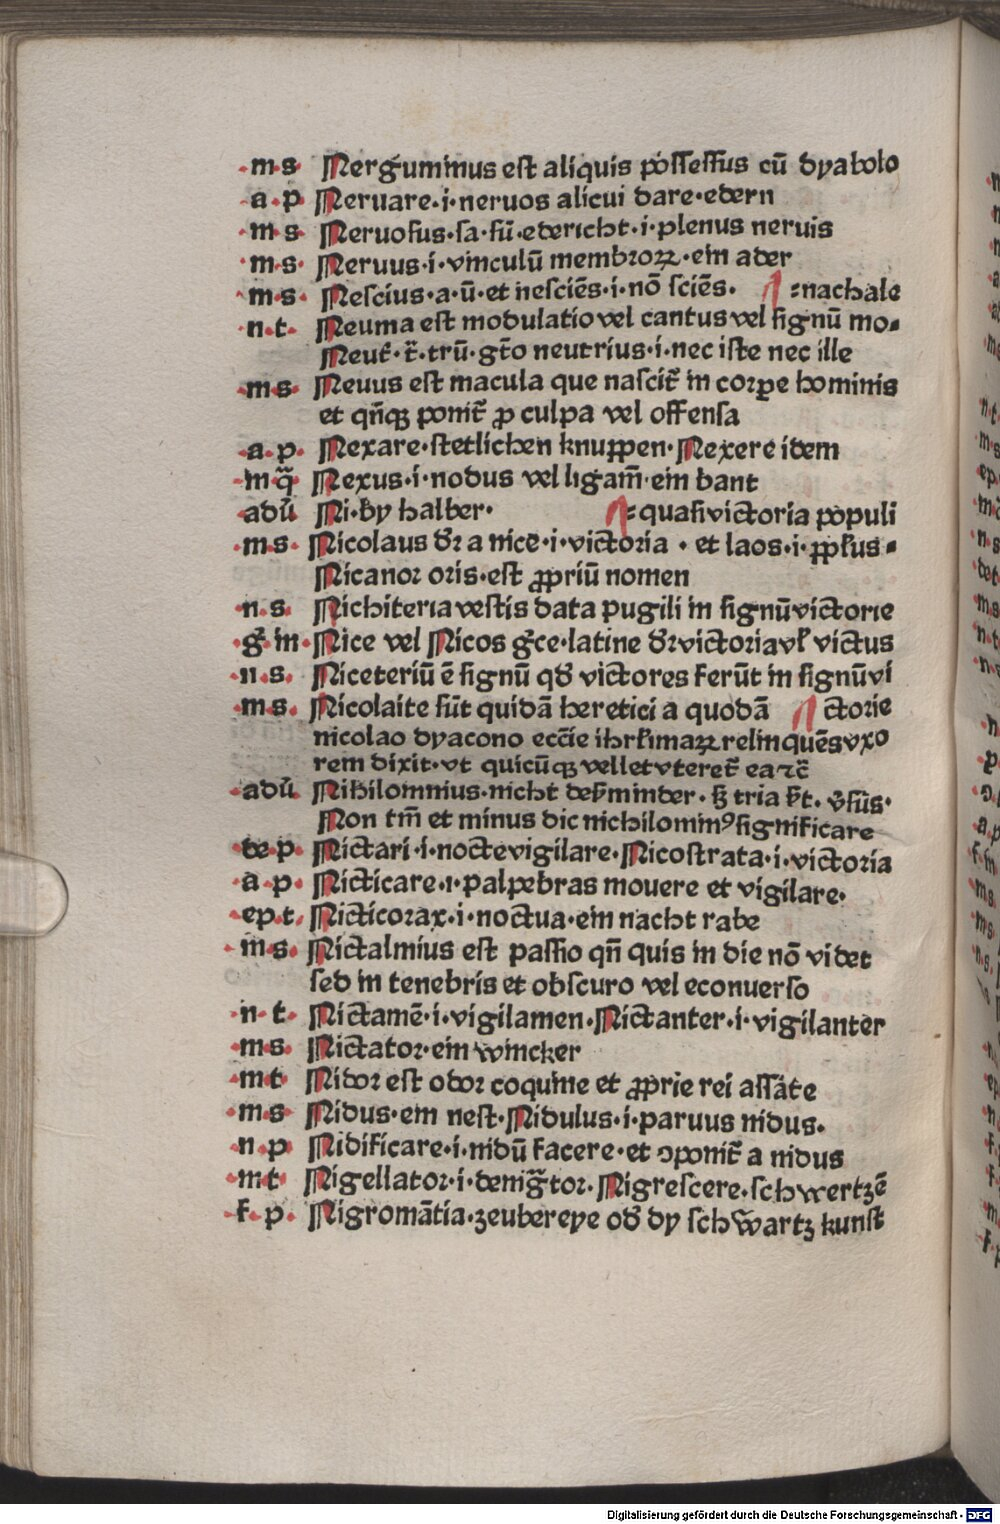 ·m·s· Nerguminus est aliquis possessus cū dyabolo
·a·p· Neruare·i·neruos alicui dare·edern
·m·s· Neruosus·sa·sū·edericht·i·plenus neruis
·m·s· Neruus·i·vinculū membroꝝ·ein ader
·m·s· Nescius·a·ū·et nesciēs·i·nō sciēs· ⸗nachale
·n·t· Neuma est modulatio vel cantus vel signū mo⸗
Neut᷑·t̄·trū·gt̄o neutrius·i·nec iste nec ille
·m·s· Neuus est macula que nascit᷑ in corꝑe hominis
et qn̄qꝫ ponit᷑ ꝓ culpa vel offensa
·a·p· Nexare·stetlichen knuppen·Nexere idem
·m·q̄· Nexus·i·nodus vel ligam̄·ein bant
·adū Ni·by halber· ⸗quasi victoria populi
·m·s· Nicolaus dr̄ a nicē·i·victoria · et laos·i·pp̄lus⸗
Nicanor oris·est ꝓpriū nomen
·n·s· Nichiteria vestis data pugili in signū victorie
·ḡ·in· Nice vel Nicos gc̄e·latine dr̄ victoria vl̄ victus
·n·s· Niceteriū ē signū qd̄ victores ferūt in signū vi
·m·s· Nicolaite sūt quidā heretici a quodā ctorie
nicolao dyacono ecc̄ie ihrl̄imaꝝ relinquēs vxo
rem dixit·vt quicūqꝫ vellet vteret᷑ ea ⁊c̄
·adū Nihilominius·nicht des̄minder· sꝫ tria s̄t· v̄sūs·
Non tm̄ et minus dic nichilominꝰ significare
·de·p· Nictari·i·nocte vigilare·Nicostrata·i·victoria
·a·p· Nicticare·i·palpebras mouere et vigilare·
·ep·t· Nicticorax·i·noctua·ein nacht rabe
·m·s· Nictalmius est passio qn̄ quis in die nō videt
sed in tenebris et obscuro vel econuerso
·n·t· Nictamē·i·vigilamen·Nictanter·i·vigilanter
·m·s· Nictator·ein wincker
·m·t· Nidor est odor coquine et ꝓprie rei assāte
·m·s· Nidus·ein nest·Nidulus·i·paruus nidus·
·n·p· Nidificare·i·nidū facere·et ꝯponit᷑ a nidus
·m·t· Nigellator·i·denig̃tor·Nigrescere·schwertzē
·f·p· Nigromātia·zeubereye od̄ dy schwartz kunst
Digitalisierung gefördert durch die Deutsche Forschungsgemeinschaft - DFG